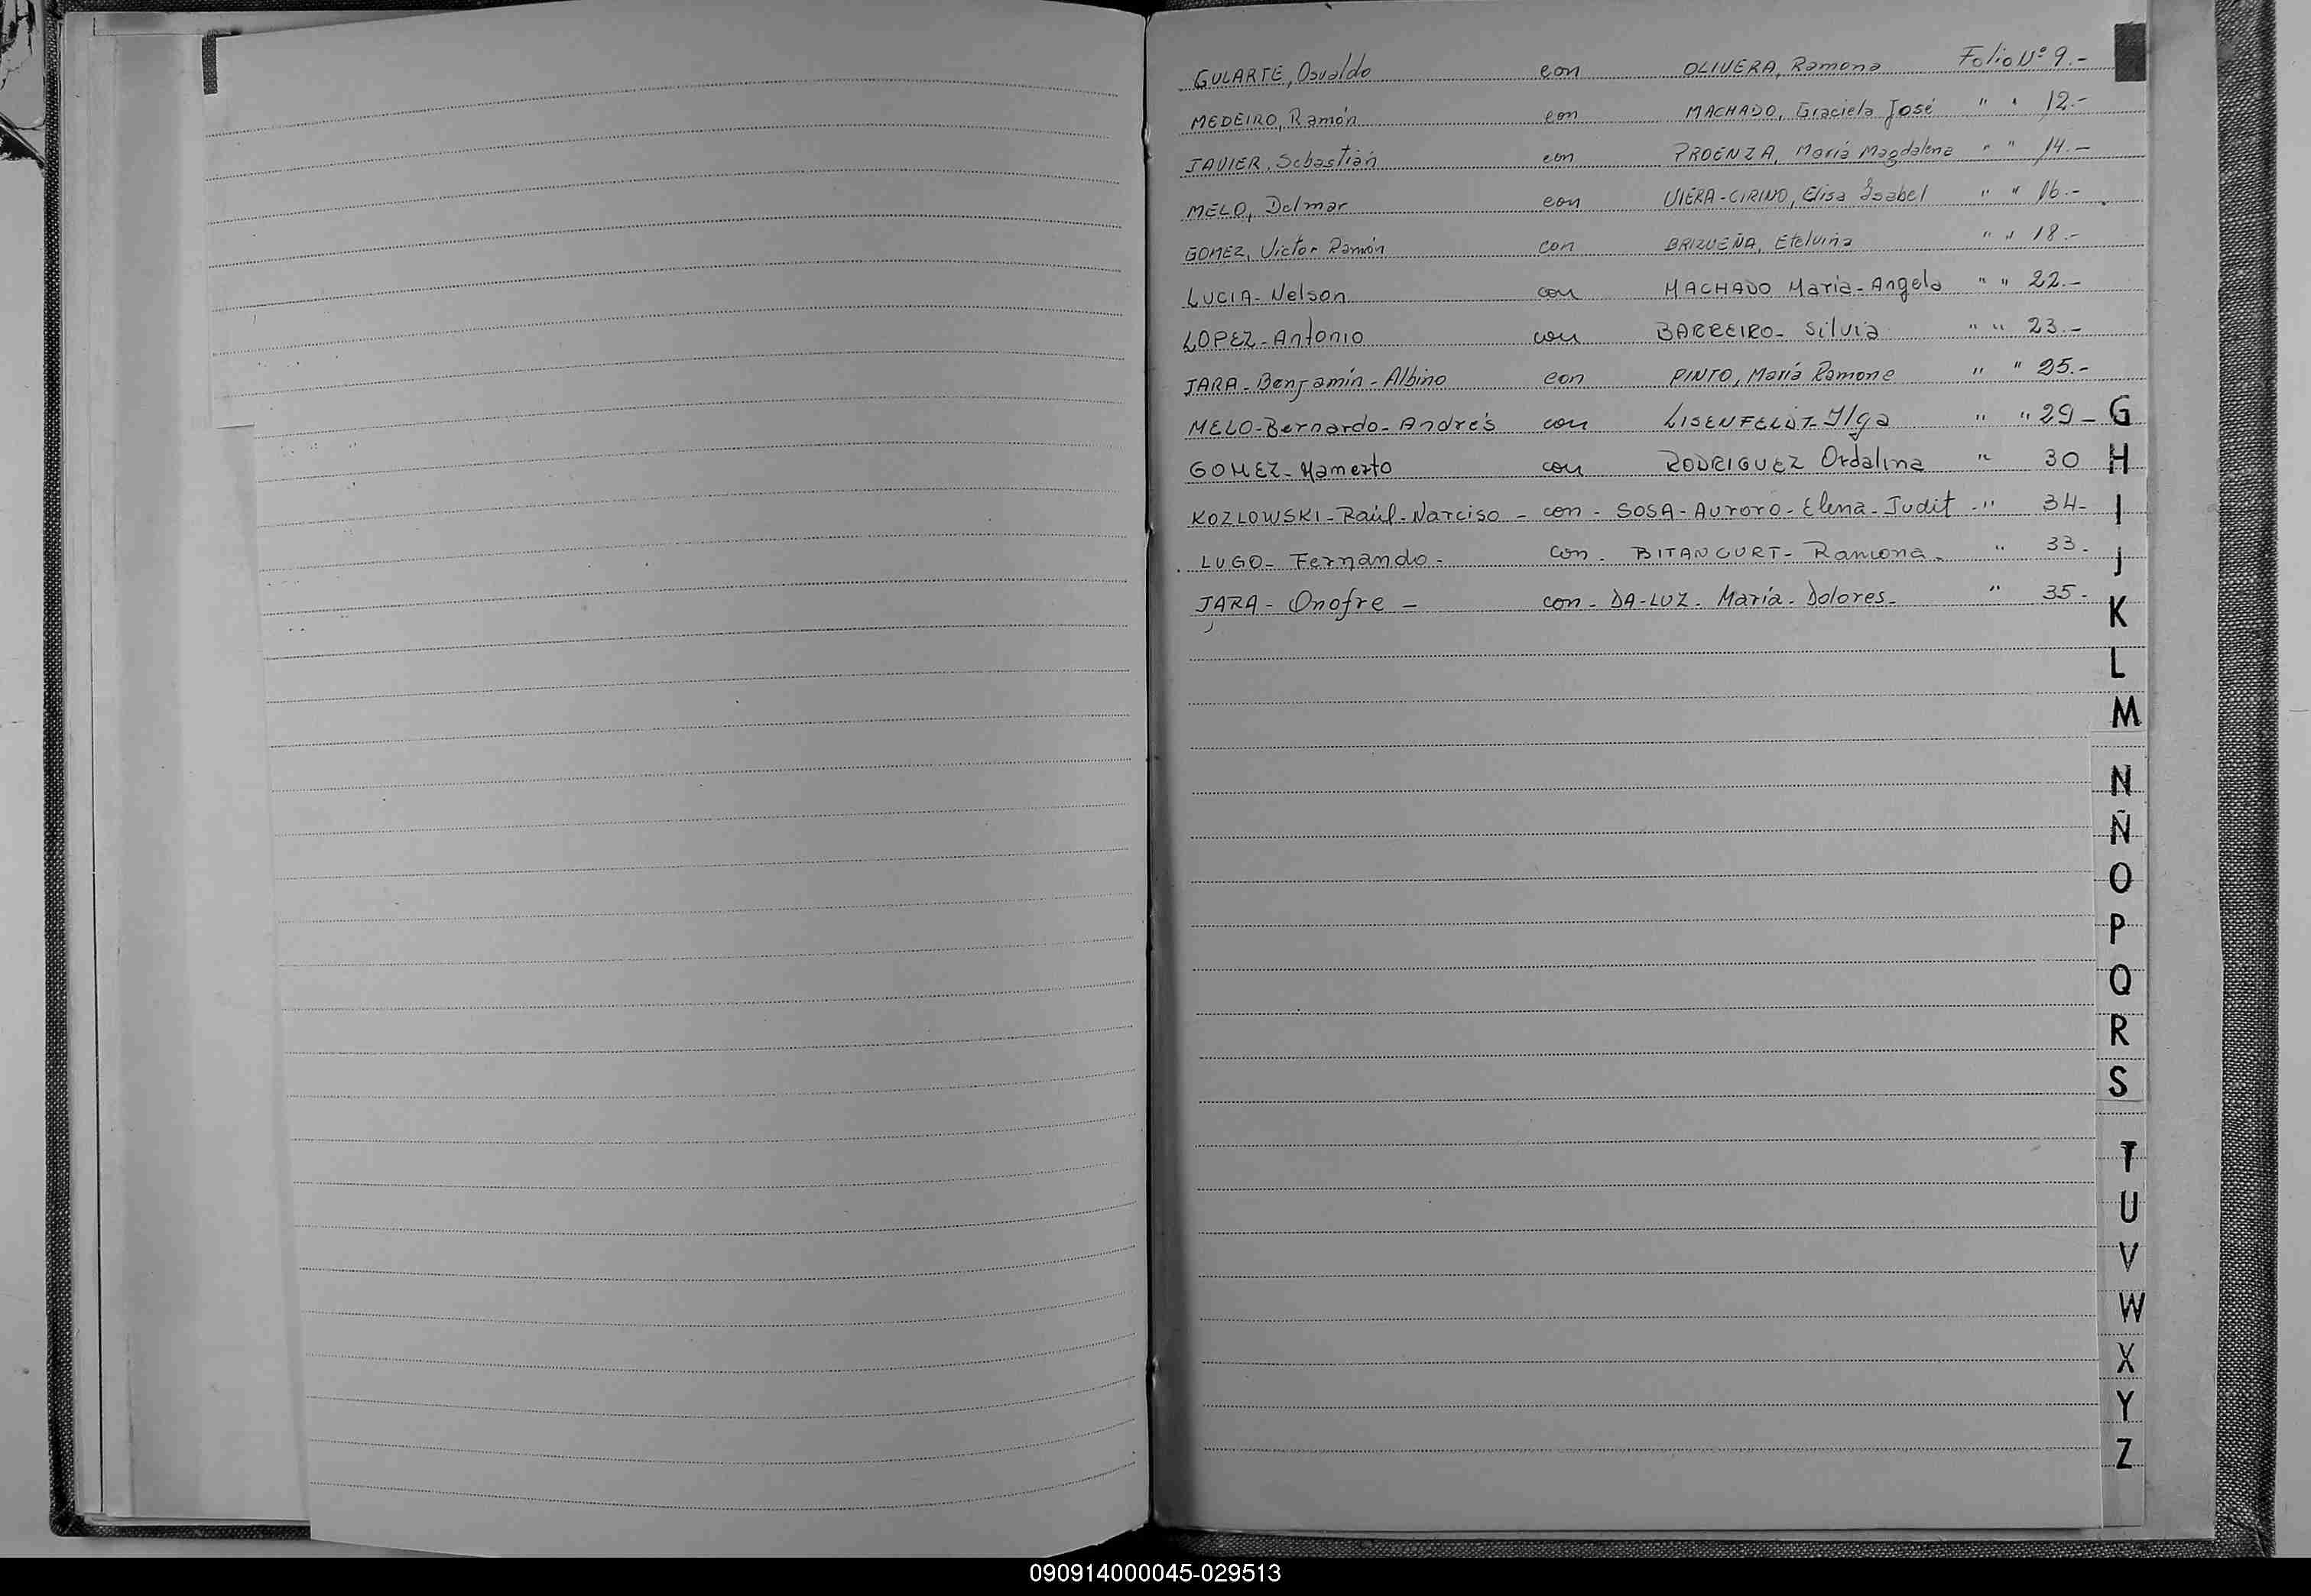 GULARTE, Osvaldo con OLIVERA, Ramona Folio Nº 9.-
MEDEIRO, Ramón con MACHADO, Graciela José " " 12.-
JAVIER, Sebastián con PROENZA, María Magdalena " " 14.-
MELO, Delmar con VIERA-CIRINO, Elisa Isabel " " 16.-
GOMEZ, Victor Ramón con BRIZUEÑA, Etelvina " " 18.-
LUCIA- Nelson con MACHADO Maria-Angela " " 22.-
LOPEZ-Antonio con BARREIRO- Silvia " " 23.-
JARA-Benjamín-Albino con PINTO, María Ramona " " 25.-
MELO-Bernardo-Andrés con LISENFELDT-Ilga " " 29-
GOMEZ-Mamerto con RODRIGUEZ Ordalina " 30
KOZLOWSKI-Raúl-Narciso - con - SOSA-Aurora-Elena-Judit -" 34-
LUGO- Fernando- con - BITANCURT- Ramona- " 33-
JARA- Onofre - con - DA-LUZ- María-Dolores- " 35-
G
H
I
J
K
L
M
N
Ñ
O
P
Q
R
S
T
U
V
W
X
Y
Z
090914000045-029513